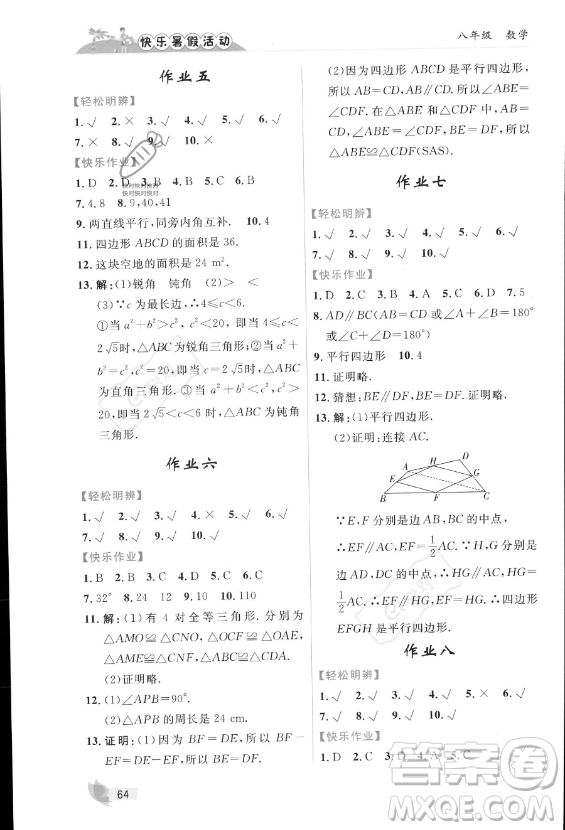 快乐暑假活动
八年级 数学
作业五
【轻松明辨】
1.√ 2.× 3.√ 4.√ 5.√ 6.√
7.× 8.√ 9.√ 10.×
【快乐作业】
1.D 2.D 3.B 4.D 5.B 6.D
7.4.8 8.9,40,41
9.两直线平行,同旁内角互补. 10.4
11.四边形 ABCD 的面积是 36.
12.这块空地的面积是 24 m².
13.解:(1)锐角 钝角 (2)> <
(3)∵c 为最长边,∴4≤c<6.
①当 a²+b²>c², 即当 4≤c<
2√5时,△ABC 为锐角三角形;②当
a²+b²=c²,即当 c=2√5时,△ABC
为直角三角形;③当 a²+b²<c²,
即当 2√5<c<6 时,△ABC 为钝角
三角形.
作业六
【轻松明辨】
1.√ 2.√ 3.√ 4.√ 5.× 6.√
7.√ 8.√ 9.√ 10.√
【快乐作业】
1.B 2.B 3.C 4.D 5.A 6.C
7.32° 8.21 9.10 10.110
11.解:(1)有 4 对全等三角形. 分别为
△AMO≌△CNO,△OCF≌△OAE,
△AME≌△CNF,△ABC≌△CDA.
(2)证明略.
12.(1)∠APB=90°.
(2)△APB 的周长是 24 cm.
13.证明:(1)因为 BE=DF,所以 BE-
EF=DF-EF,所以 BF=DE.
64
(2)因为四边形 ABCD 是平行四边形,
所以 AB=CD,AB∥CD,所以∠ABE
=∠CDF.在△ABE 和△CDF 中,
AB=CD,∠ABE=∠CDF,BE=DF,
所以△ABE≌△CDF(SAS).
作业七
【轻松明辨】
1.√ 2.√ 3.√ 4.√ 5.× 6.√
7.√ 8.× 9.× 10.√
【快乐作业】
1.D 2.C 3.B 4.A 5.C 6.D 7.5
8.AD∥BC(AB=CD 或∠A+∠B=180°
或∠C+∠D=180°)
9.平行四边形 10.4
11.证明略.
12.猜想:BE∥DF,BE=DF.证明略.
13.解:(1)平行四边形.
(2)证明:连接 AC.
D
H
A
E
G
B
F
C
∵E,F 分别是 AB,BC 的中点,
∴EF∥AC,EF=1/2AC.
同理 HG∥AC,HG=
1/2AC.∴EF∥HG,EF=HG.∴四边形
EFGH 是平行四边形.
作业八
【轻松明辨】
1.√ 2.√ 3.√ 4.√ 5.× 6.√
7.√ 8.√ 9.√ 10.√
【快乐作业】
1.D 2.C 3.D 4.D 5.C